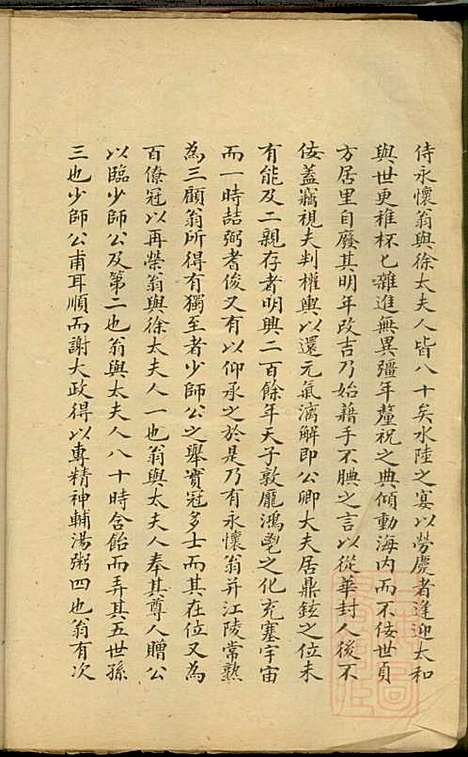 侍永懷翁與徐太夫人皆八十矣水陸之宴以勞慶者逢迎太和
與世更稚杯匕雜進無異彊年釐祝之典傾動海內而不佞世貞
方居里自廢其明年改吉乃始藉手不腆之言以從華封人後不
佞蓋竊視夫判權輿以還元氣漓解即公卿大夫居鼎鉉之位未
有能及二親存者明興二百餘年天子敦龐鴻毣之化充塞宇宙
而一時喆弼者俊又有以仰承之於是乃有永懷翁并江陵常熟
為三顧翁所得有獨至者少師公之舉實冠多士而其在位又為
百僚冠以再榮翁與徐太夫人一也翁與太夫人奉其尊人贈公
以臨少師公及第二也翁與太夫人八十時含飴而弄其五世孫
三也少師公甫耳順而謝大政得以專精神輔湯粥四也翁有次